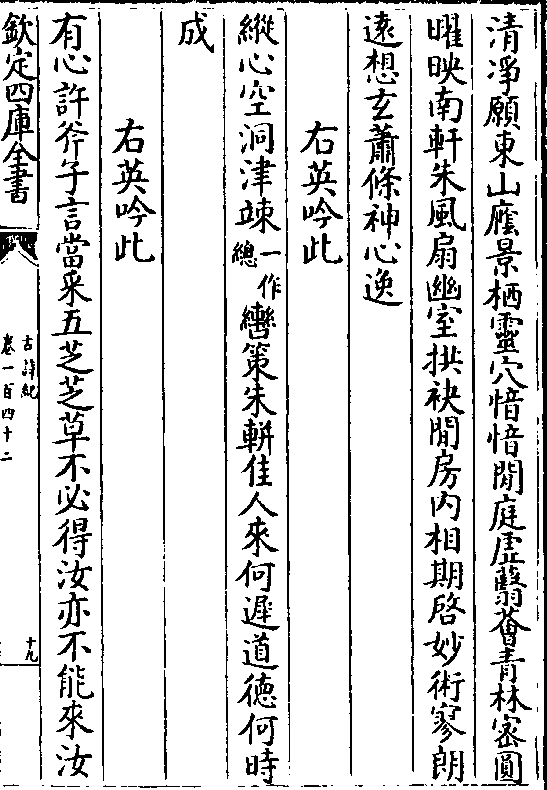 清淨願東山廕景栖靈穴愔愔閒庭虛翳薈青林密圓
曜映南軒朱風扇幽室拱袂閒房内相期啓妙術寥朗
逺想玄蕭條神心逸
右英吟此
縱心空洞津竦一作總轡策朱軿佳人來何遲道德何時
成
右英吟此
有心許斧子言當采五芝芝草不必得汝亦不能來汝
欽定四庫全書
古詩紀
卷一百四十二
十九